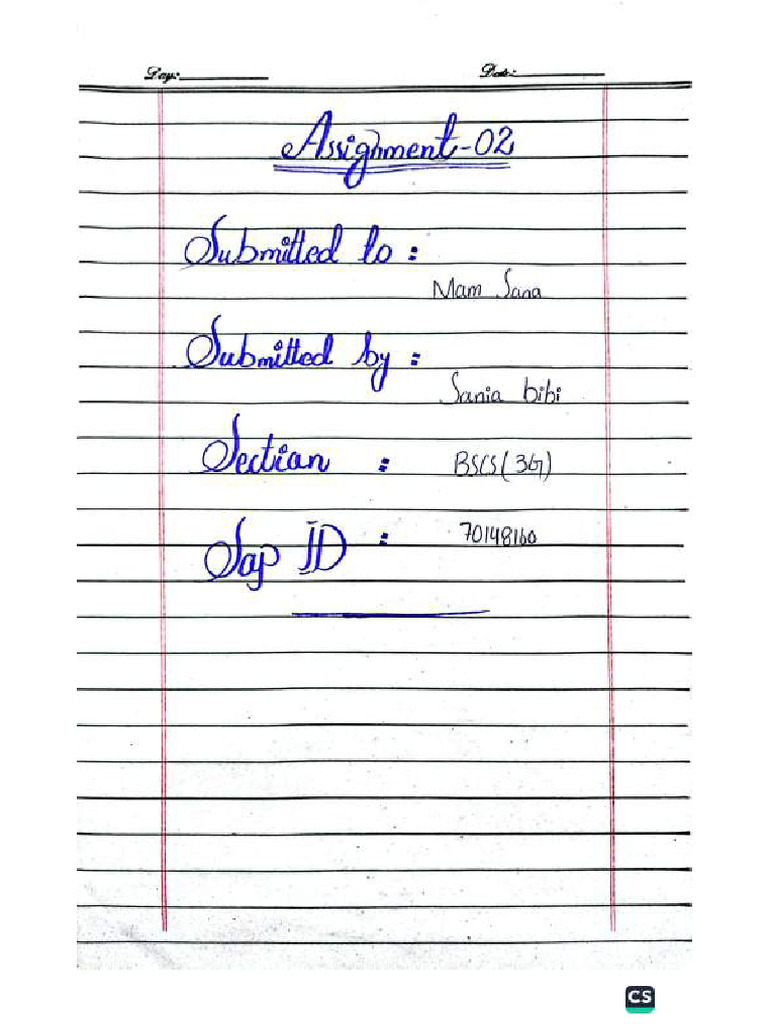 Day: Date:
Assignment-02
Submitted to :
Mam Sana
Submitted by :
Sania bibi
Section : BSCS(3G)
Sap ID : 70148160
CS